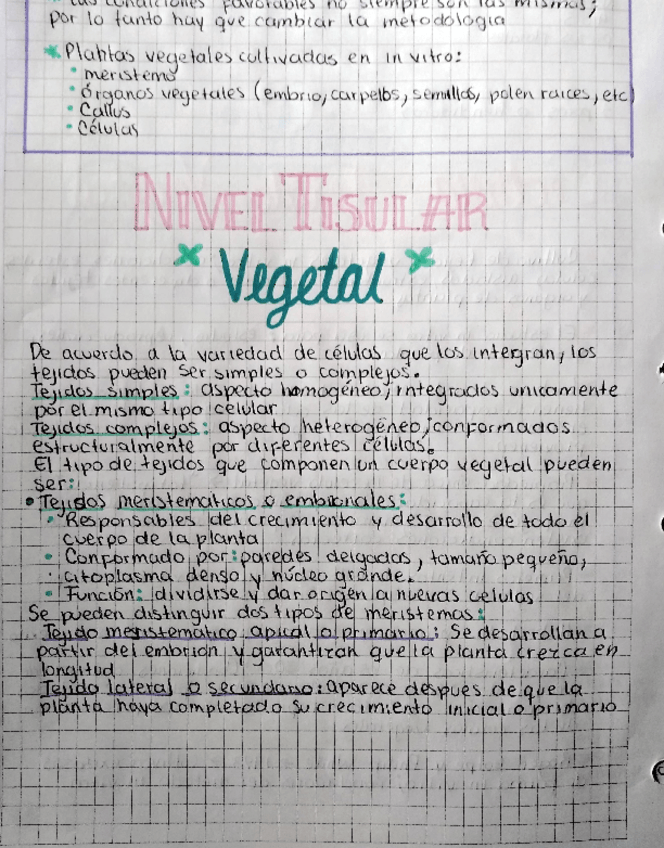 condiciones favorables no siempre son las mismas;
por lo tanto hay que cambiar la metodología
* Plantas vegetales cultivadas en in vitro:
• meristemo
• órganos vegetales (embrio, carpelos, semillas, polen raices, etc)
• Callus
• Células
NIVEL TISULAR
* Vegetal *
De acuerdo a la variedad de células que los intergran, los
tejidos pueden ser simples o complejos.
Tejidos simples: aspecto homogéneo, integrados unicamente
por el mismo tipo celular
Tejidos complejos: aspecto heterogéneo, conformados
estructuralmente por diferentes células.
El tipo de tejidos que componen un cuerpo vegetal pueden
ser:
• Tejidos meristematicos o embrionales:
• Responsables del crecimiento y desarrollo de todo el
cuerpo de la planta
• Conformado por: paredes delgadas, tamaño pequeño,
citoplasma denso y núcleo grande.
• Función: dividirse y dar origen a nuevas celulas
Se pueden distinguir dos tipos de meristemas:
Tejido meristemático apical o primario: Se desarrollan a
partir del embrion y garantizan que la planta crezca en
longitud
Tejido lateral o secundario: aparece despues de que la
planta haya completado su crecimiento inicial o primario